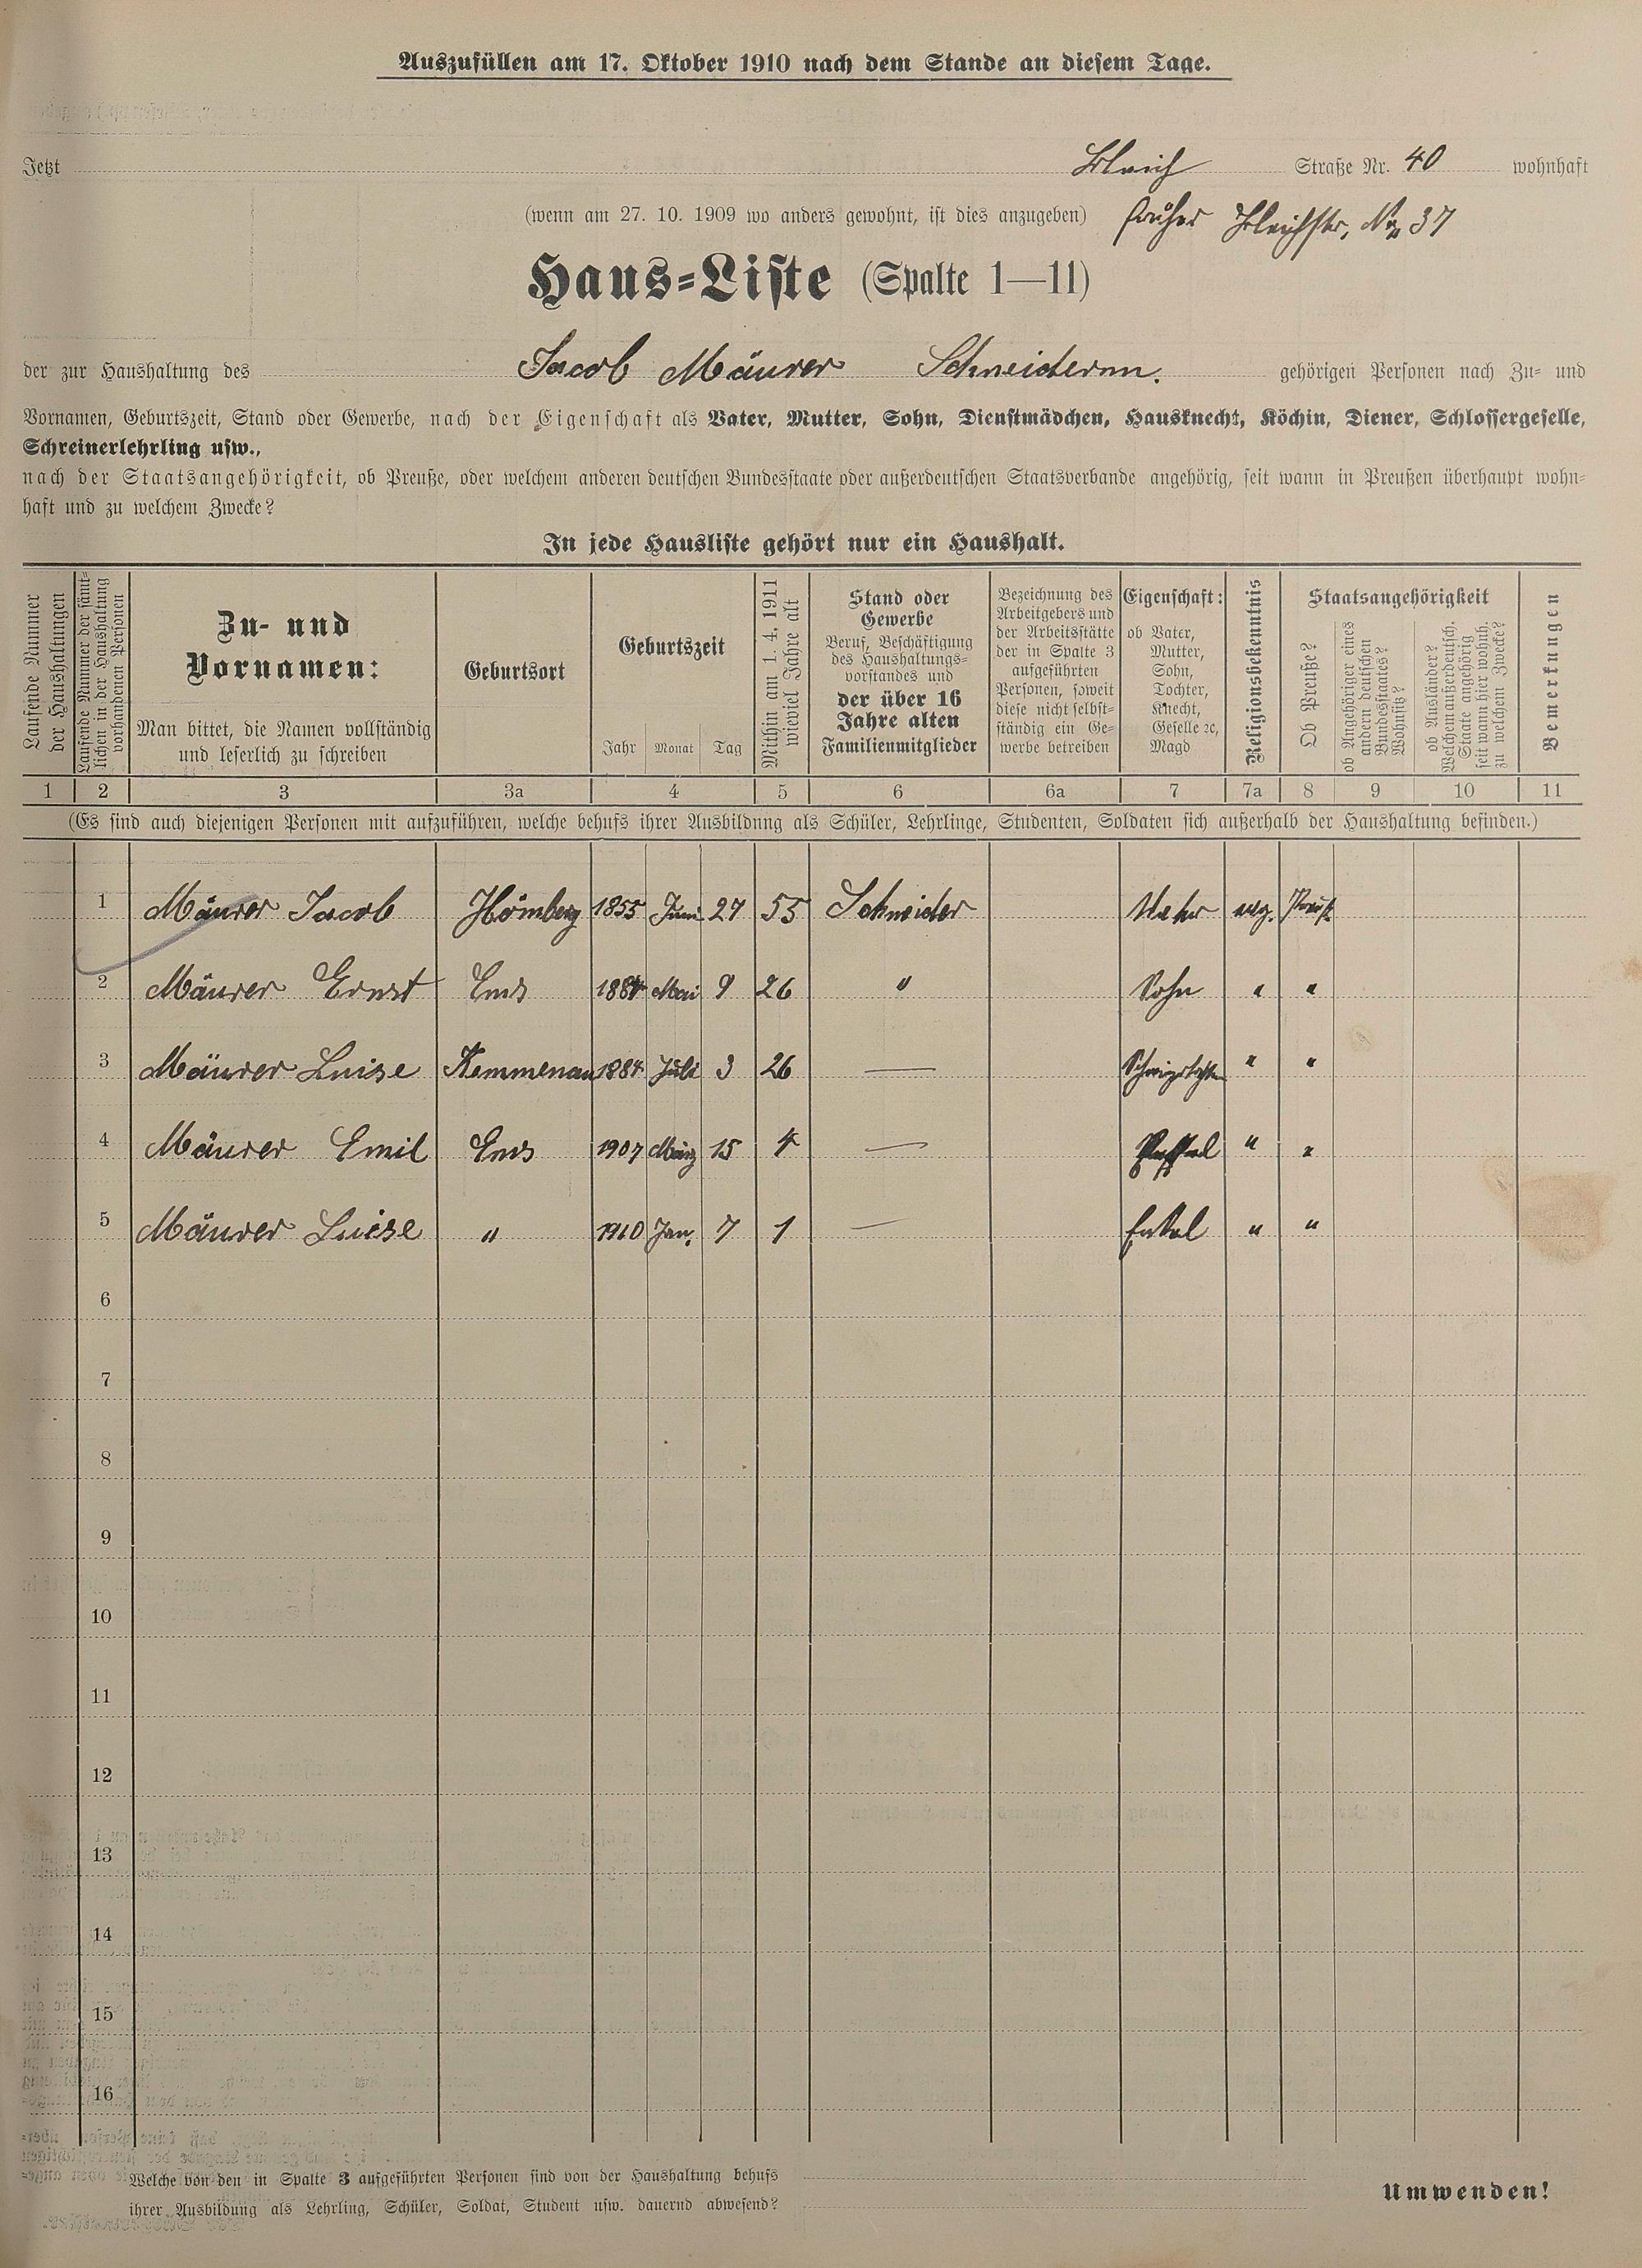 Auszufüllen am 17. Oktober 1910 nach dem Stande an diesem Tage.
Jetzt Bleich Straße Nr. 40 wohnhaft
(wenn am 27. 10. 1909 wo anders gewohnt, ist dies anzugeben) früher Bleichstr. No 37
Haus-Liste (Spalte 1—11)
der zur Haushaltung des Jacob Mäurer Schneiderm. gehörigen Personen nach Zu- und
Vornamen, Geburtszeit, Stand oder Gewerbe, nach der Eigenschaft als Vater, Mutter, Sohn, Dienstmädchen, Hausknecht, Köchin, Diener, Schlossergeselle,
Schreinerlehrling usw.,
nach der Staatsangehörigkeit, ob Preuße, oder welchem anderen deutschen Bundesstaate oder außerdeutschen Staatsverbande angehörig, seit wann in Preußen überhaupt wohn-
haft und zu welchem Zwecke?
In jede Hausliste gehört nur ein Haushalt.
Laufende Nummer
der Haushaltungen
Laufende Nummer der sämt-
lichen in der Haushaltung
vorhandenen Personen
Zu- und
Vornamen:
Man bittet, die Namen vollständig
und leserlich zu schreiben
Geburtsort
Geburtszeit
Jahr Monat Tag
Mithin am 1. 4. 1911
wieviel Jahre alt
Stand oder
Gewerbe
Beruf, Beschäftigung
des Haushaltungs-
vorstandes und
der über 16
Jahre alten
Familienmitglieder
Bezeichnung des
Arbeitgebers und
der Arbeitsstätte
der in Spalte 3
aufgeführten
Personen, soweit
diese nicht selbst-
ständig ein Ge-
werbe betreiben
Eigenschaft:
ob Vater,
Mutter,
Sohn,
Tochter,
Knecht,
Geselle ꝛc,
Magd
Religionsbekenntnis
Staatsangehörigkeit
Ob Preuße?
ob Angehöriger eines
andern deutschen
Bundesstaates?
Wohnsitz?
ob Ausländer?
Welchem außerdeutsch.
Staate angehörig
seit wann hier wohnh.
zu welchem Zwecke?
Bemerkungen
1 2 3 3a 4 5 6 6a 7 7a 8 9 10 11
(Es sind auch diejenigen Personen mit aufzuführen, welche behufs ihrer Ausbildung als Schüler, Lehrlinge, Studenten, Soldaten sich außerhalb der Haushaltung befinden.)
1 Mäurer Jacob Hömberg 1855 Juni 27 55 Schneider Vater evg. Preuß.
2 Mäurer Ernst Ems 1884 Mai 9 26 " Sohn " "
3 Mäurer Luise Kemmenau 1884 Juli 3 26 — Schwiegertochter " "
4 Mäurer Emil Ems 1907 März 15 4 — " "
5 Mäurer Luise " 1910 Jan. 7 1 — Enkel " "
6
7
8
9
10
11
12
13
14
15
16
Welche von den in Spalte 3 aufgeführten Personen sind von der Haushaltung behufs
ihrer Ausbildung als Lehrling, Schüler, Soldat, Student usw. dauernd abwesend?
Umwenden!